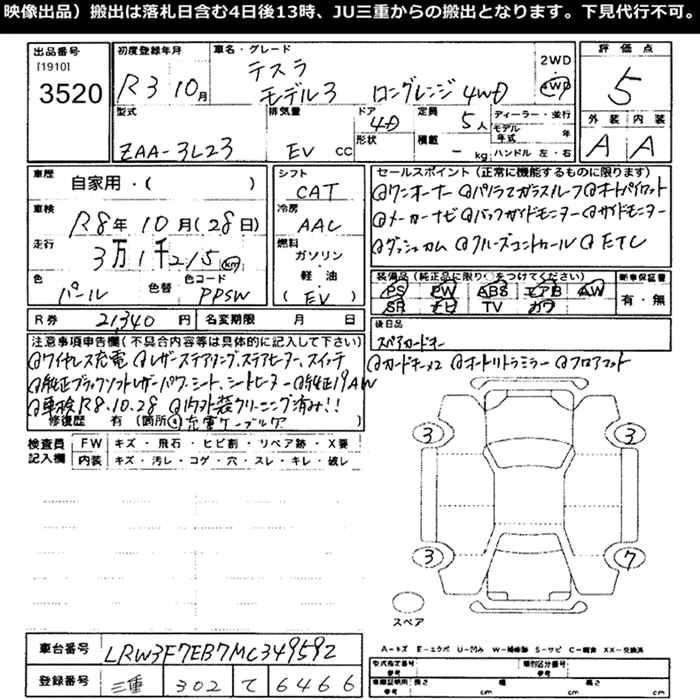 映像出品）搬出は落札日含む4日後13時、JU三重からの搬出となります。下見代行不可。
出品番号 [1910] 3520
初度登録年月 R3 10月
車名・グレード テスラ モデル3 ロングレンジ 4WD
2WD 4WD
評価点 5
外装 A 内装 A
型式 ZAA-3L23
排気量 EV CC
ドア 4D 形状
定員 5人 積載 - kg
ディーラー・並行 モデル年式 年 ハンドル 左・右
車歴 自家用・( )
車検 R8年10月(28日)
走行 3万1千215km
色 パール 色替 色コード PPSW
シフト CAT
冷房 AAC
燃料 ガソリン・軽油・(EV)
セールスポイント (正常に機能するものに限ります)
@ワンオーナー @パノラマガラスルーフ @オートパイロット
@メーカーナビ @バックガイドモニター @サイドモニター
@ダッシュカム @クルーズコントロール @ETC
装備品 (純正品に限り○をつけてください)
PS PW ABS エアB AW
SR ナビ TV カワ
新車保証書 有・無
R券 21,340円 名変期限 月 日
後日品 スペアカードキー
注意事項申告欄 (不具合内容等は具体的に記入して下さい)
@ワイヤレス充電 @レザーステアリング、ステアヒーター、スイッチ @カードキー×2 @オートリトラミラー @フロアマット
@純正ブラックソフトレザーパワーシート、シートヒーター @純正19AW
@車検R8.10.28 @内外装クリーニング済み!!
修復歴 有 (箇所 @充電ケーブルケア
検査員記入欄 FW キズ・飛石・ヒビ割・リペア跡・X要
内装 キズ・汚レ・コゲ・穴・スレ・キレ・破レ
3 3
3 7
スペア
A-キズ E-エクボ U-凹み W-補修跡 S-サビ C-腐食 XX-交換済
車台番号 LRW3F7EB7MC349592
登録番号 三重 302 て 6466
型式指定番号 参考 類別区分番号 参考
車庫証明用 参考 長さ cm 幅 cm 高さ cm